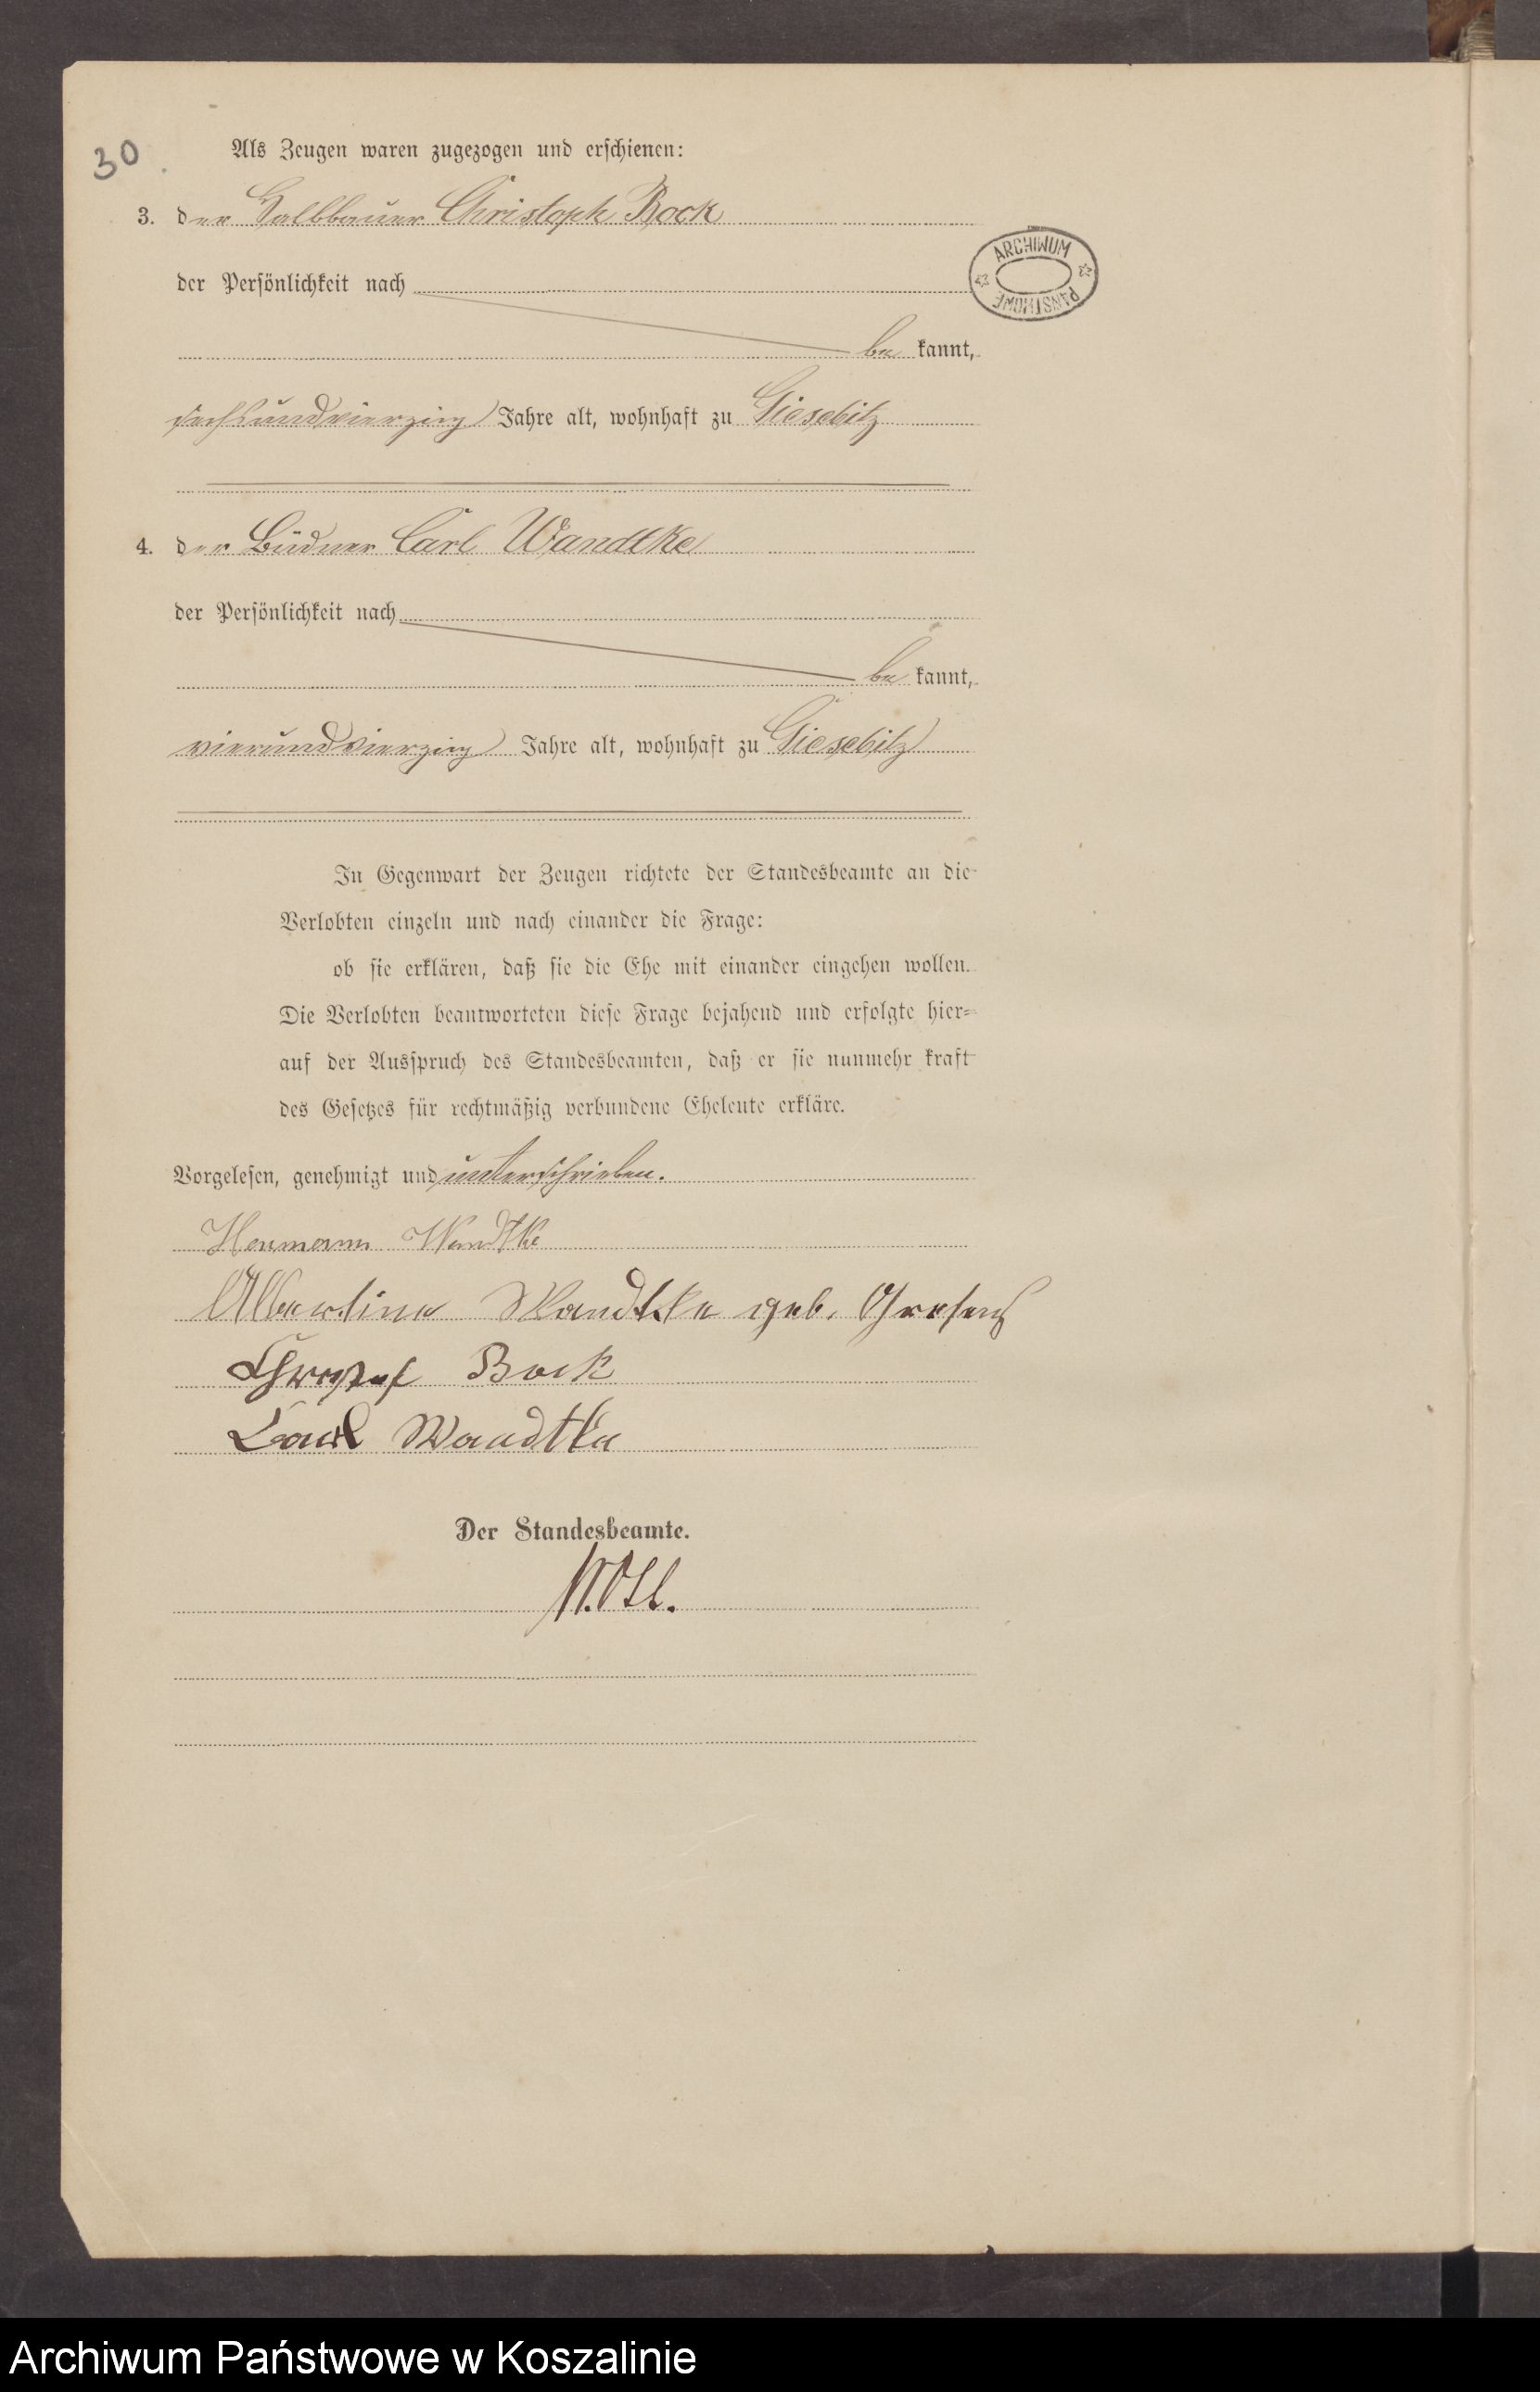 30
Als Zeugen waren zugezogen und erschienen:
3. der Halbbauer Christoph Bock
ARCHIWUM PAŃSTWOWE
der Persönlichkeit nach
be kannt,
sechsundvierzig Jahre alt, wohnhaft zu Giesebitz
4. der Büdner Carl Wandtke
der Persönlichkeit nach
be kannt,
vierundvierzig Jahre alt, wohnhaft zu Giesebitz
In Gegenwart der Zeugen richtete der Standesbeamte an die
Verlobten einzeln und nach einander die Frage:
ob sie erklären, daß sie die Ehe mit einander eingehen wollen.
Die Verlobten beantworteten diese Frage bejahend und erfolgte hier-
auf der Ausspruch des Standesbeamten, daß er sie nunmehr kraft
des Gesetzes für rechtmäßig verbundene Eheleute erkläre.
Vorgelesen, genehmigt und unterschrieben.
Hermann Wandtke
Albertine Wandtke geb. Gresens
Bock
Carl Wandtke
Der Standesbeamte.
Archiwum Państwowe w Koszalinie